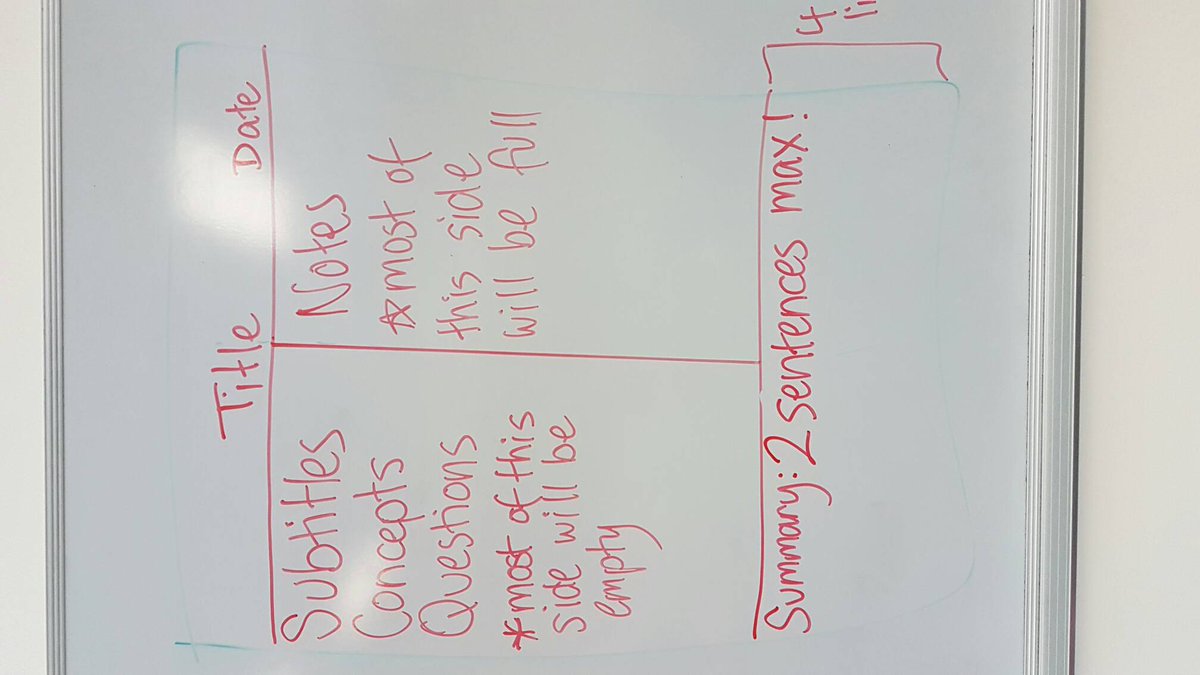 Title Date
Subtitles
Concepts
Questions
*most of this
side will be
empty
Notes
☆most of
this side
will be full
Summary: 2 sentences max!
4